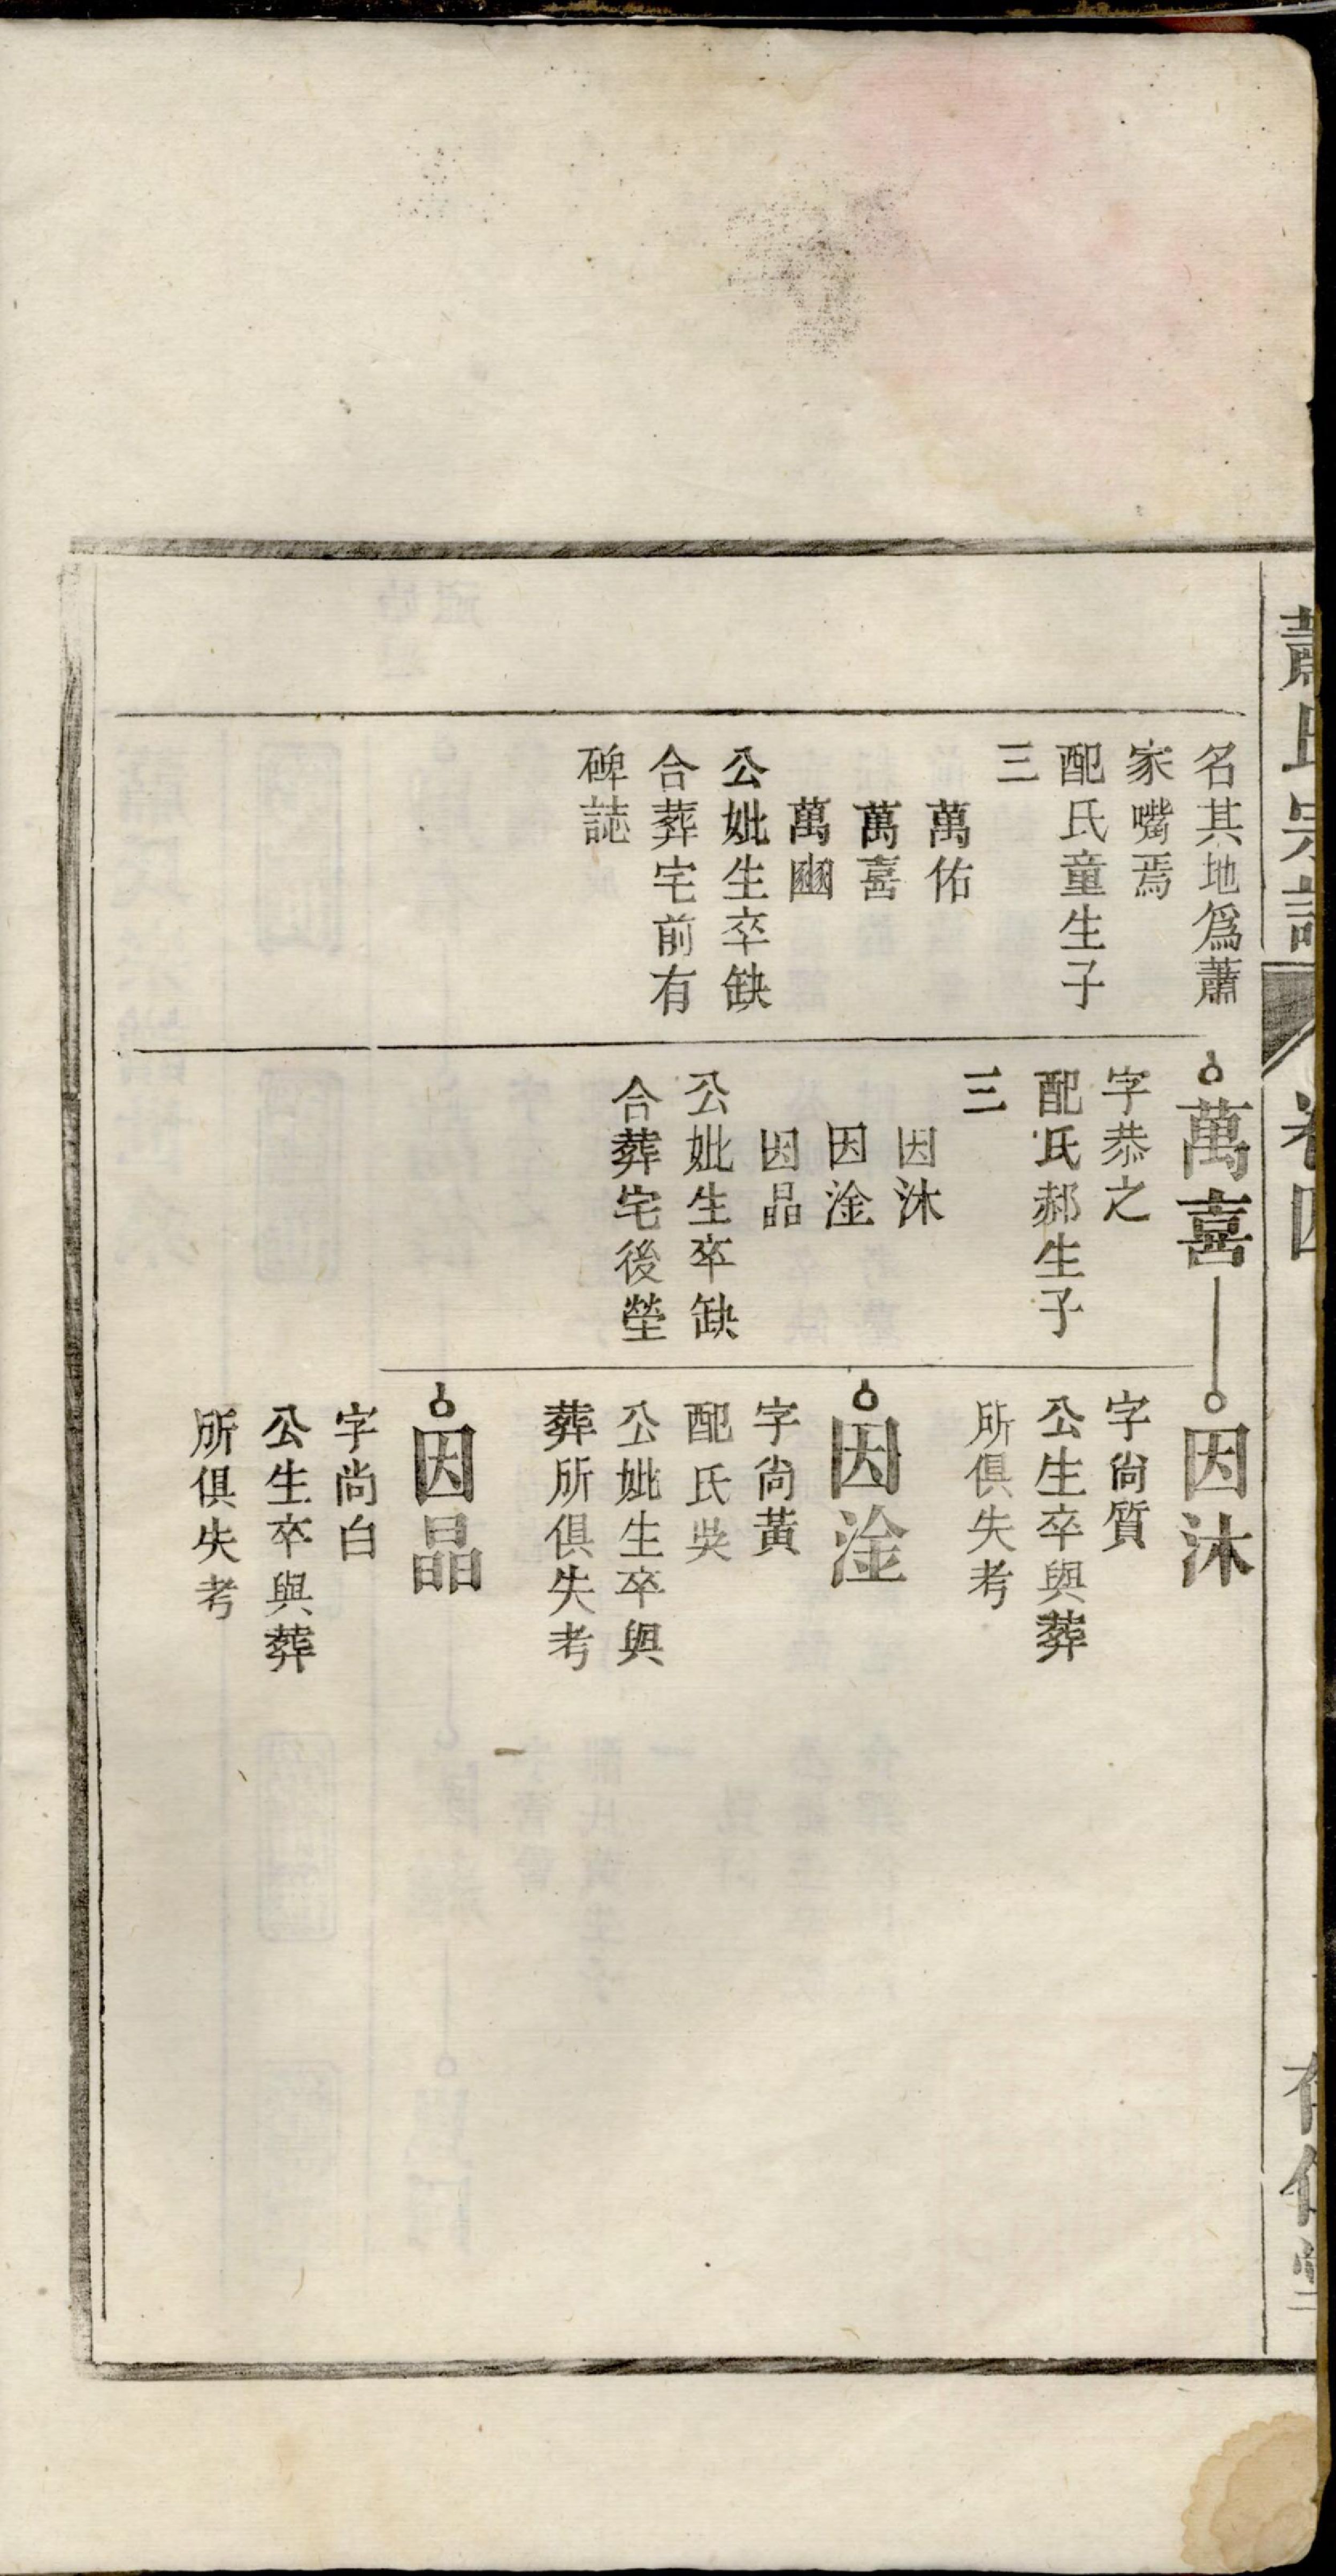 蕭氏宗譜
卷四
名其地為蕭
家嘴焉
配氏童生子
三
萬佑
萬喜
萬豳
公妣生卒缺
合葬宅前有
碑誌
萬喜
字恭之
配氏郝生子
三
因沐
因淦
因品
公妣生卒缺
合葬宅後塋
因沐
字尙質
公生卒與葬
所俱失考
因淦
字尙黃
配氏吳
公妣生卒與
葬所俱失考
因晶
字尚白
公生卒與葬
所俱失考